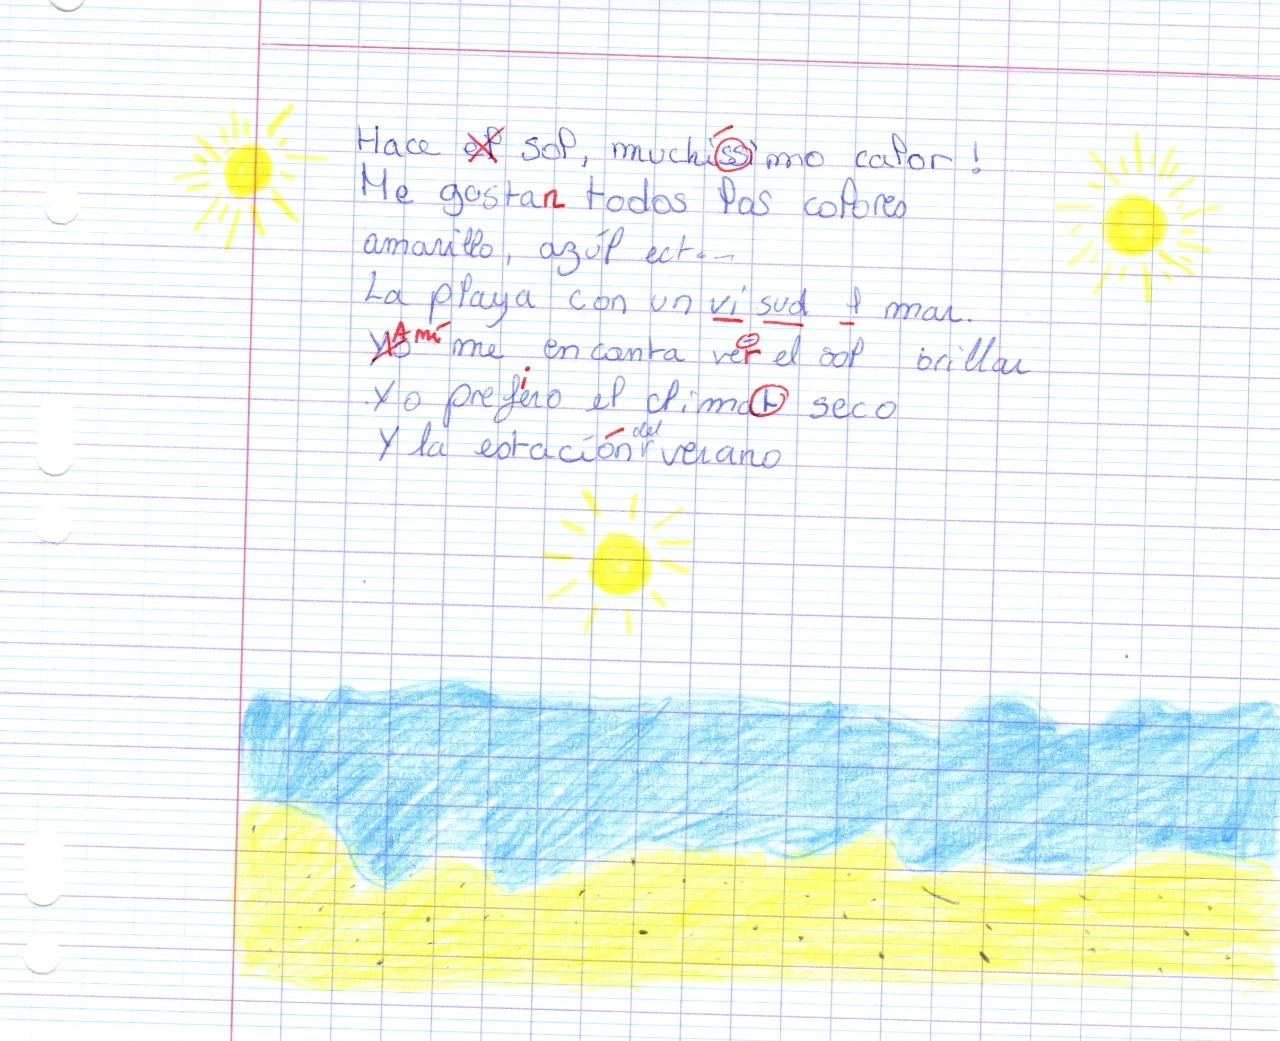 Hace el sol, muchíssimo calor !
Me gustan todos las colores
amarillo, azúl ect...
La playa con un vi sud l mar.
Yo A mí me encanta ver el sol brillar
Yo prefiero el climat seco
Y la estación del verano